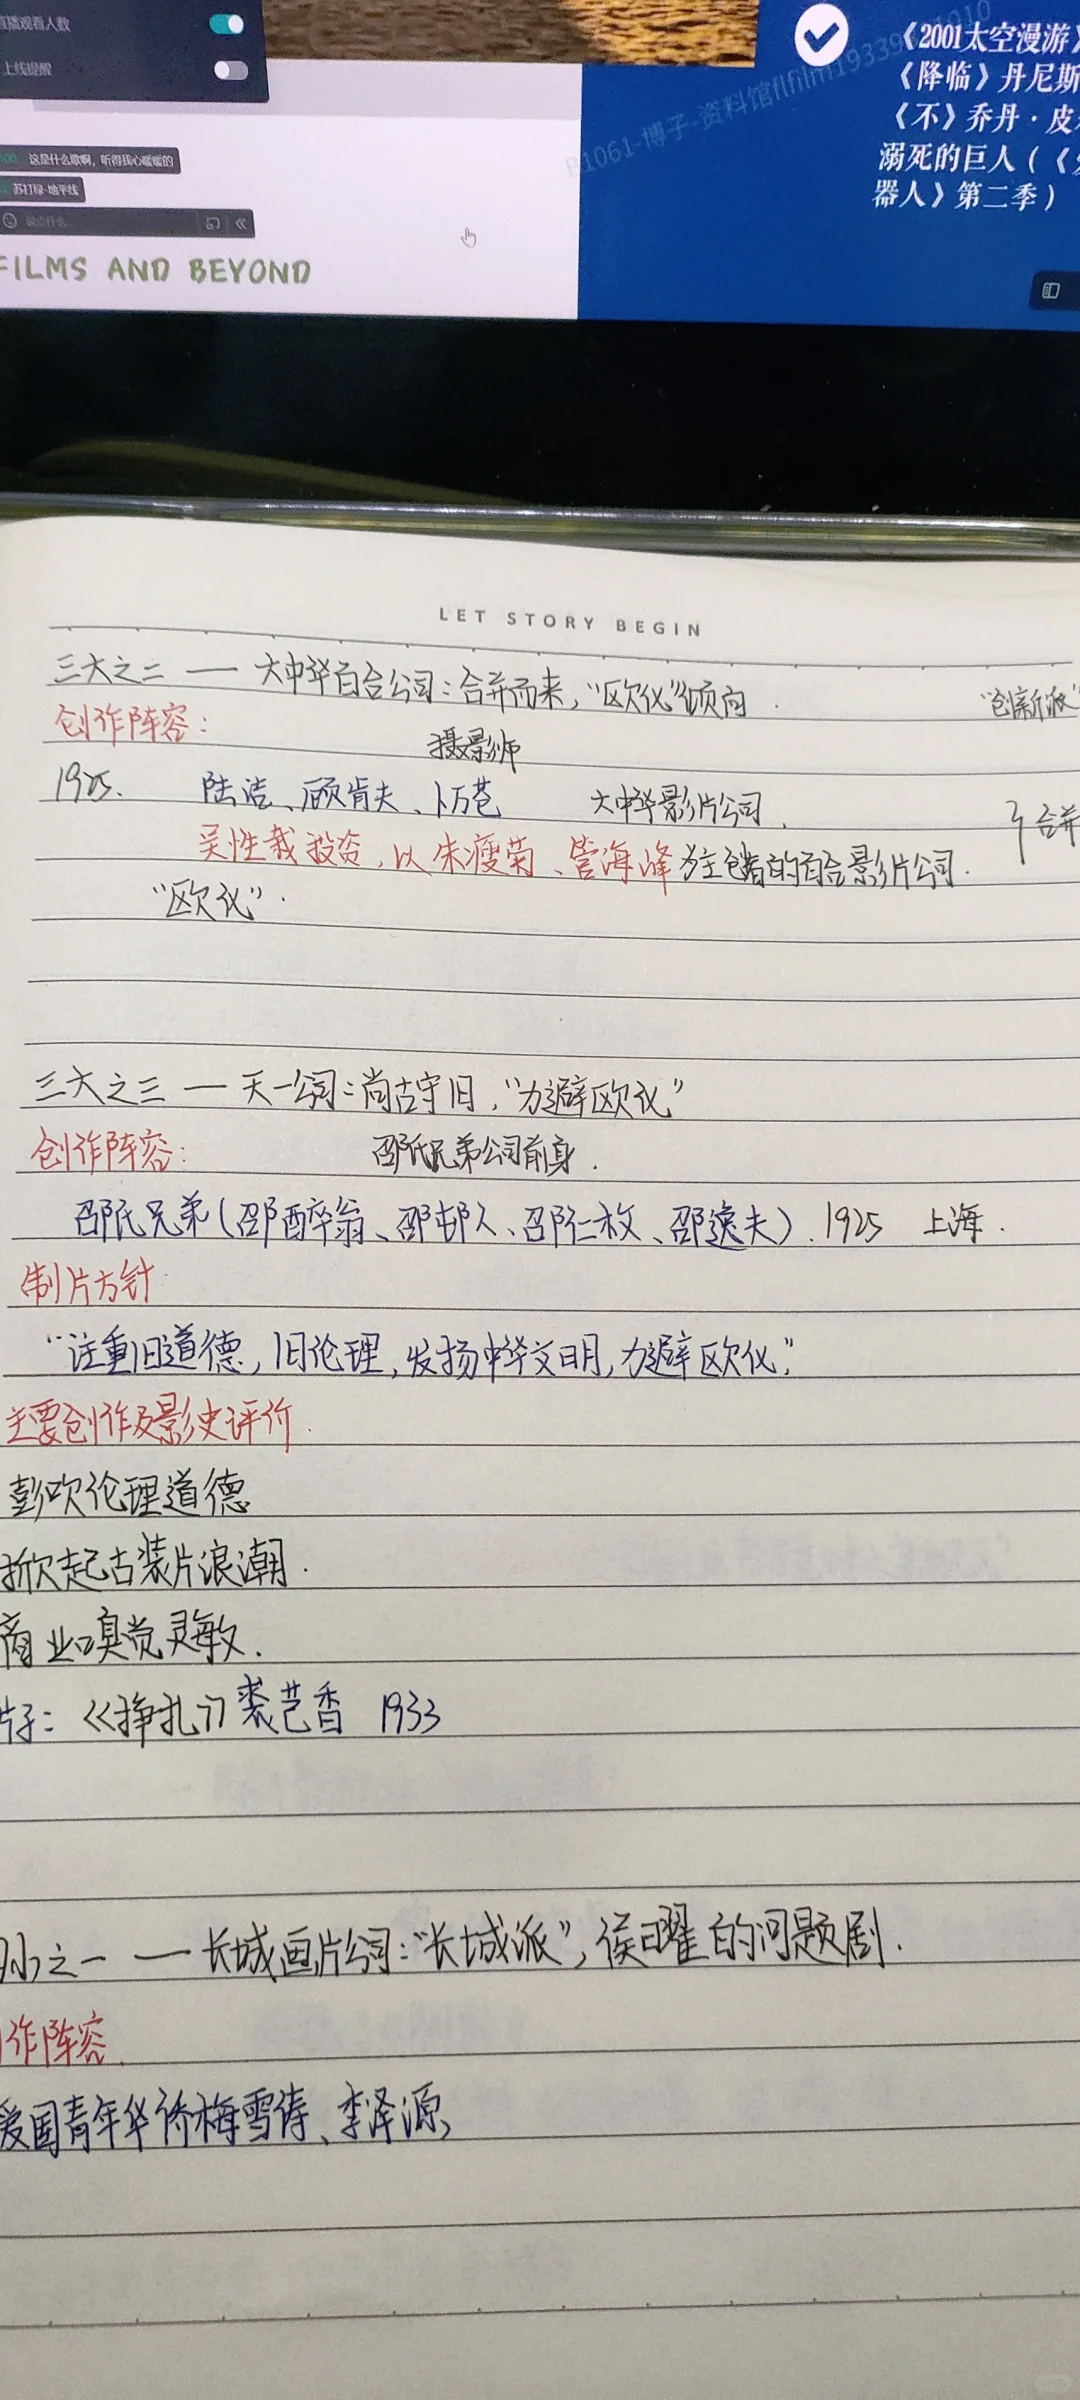 直播观看人数
上线提醒
这是什么歌啊，听得我心暖暖的
苏打绿-地平线
说点什么...
FILMS AND BEYOND
B1061-博子-资料馆flfilm1933
《2001太空漫游》
《降临》丹尼斯
《不》乔丹·皮
溺死的巨人（《
器人》第二季）
LET STORY BEGIN
三大之二 — 大中华百合公司：合并而来，“欧化”倾向 “创新派”
创作阵容：
摄影师
1925. 陆洁、顾肯夫、卜万苍 大中华影片公司
合并
吴性栽投资，以朱瘦菊、管海峰为主创者的百合影片公司.
“欧化”.
三大之三 — 天一公司：尚古守旧，“力避欧化”
创作阵容：
邵氏兄弟公司前身.
邵氏兄弟（邵醉翁、邵邨人、邵仁枚、邵逸夫）. 1925 上海.
制片方针
“注重旧道德，旧伦理，发扬中华文明，力避欧化”
主要创作及影史评价.
彭吹伦理道德
掀起古装片浪潮.
商业嗅觉灵敏.
片子：《挣扎》裘芑香 1933
小之一 — 长城画片公司：“长城派”，侯曜的问题剧.
作阵容
爱国青年华侨梅雪俦、李泽源、